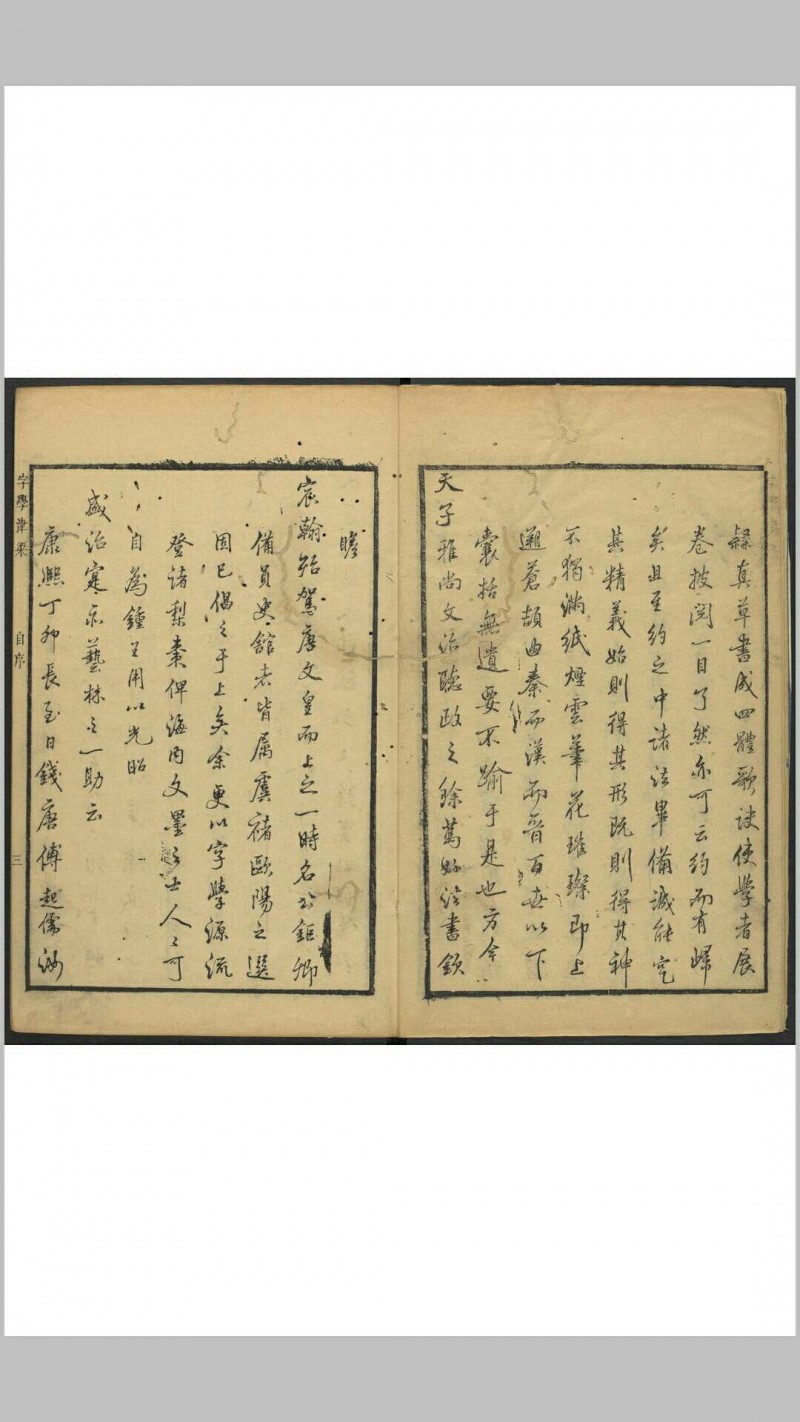 隸真草書成四體歌訣使學者展
卷披閱一目了然亦可云約而有歸
矣且至約之中諸法畢備誠能究
其精義始則得其形既則得其神
不獨滿紙煙雲筆花璀璨即上
遡蒼頡曲秦而漢而晉百世以下
囊括無遺要不踰于是也方今
天子雅尚文治聽政之餘萬幾法書欽
瞻
宸翰殆駕唐文皇而上之一時名公鉅卿
備員史館者皆屬虞褚歐陽之選
固已偶之于上矣余更以字學源流
登諸梨棗俾海內文墨之士人人可
自為鍾王用以光昭
盛治寔亦藝林之一助云
康熙丁卯長至日錢唐傅起儒
字學津梁
自序
三